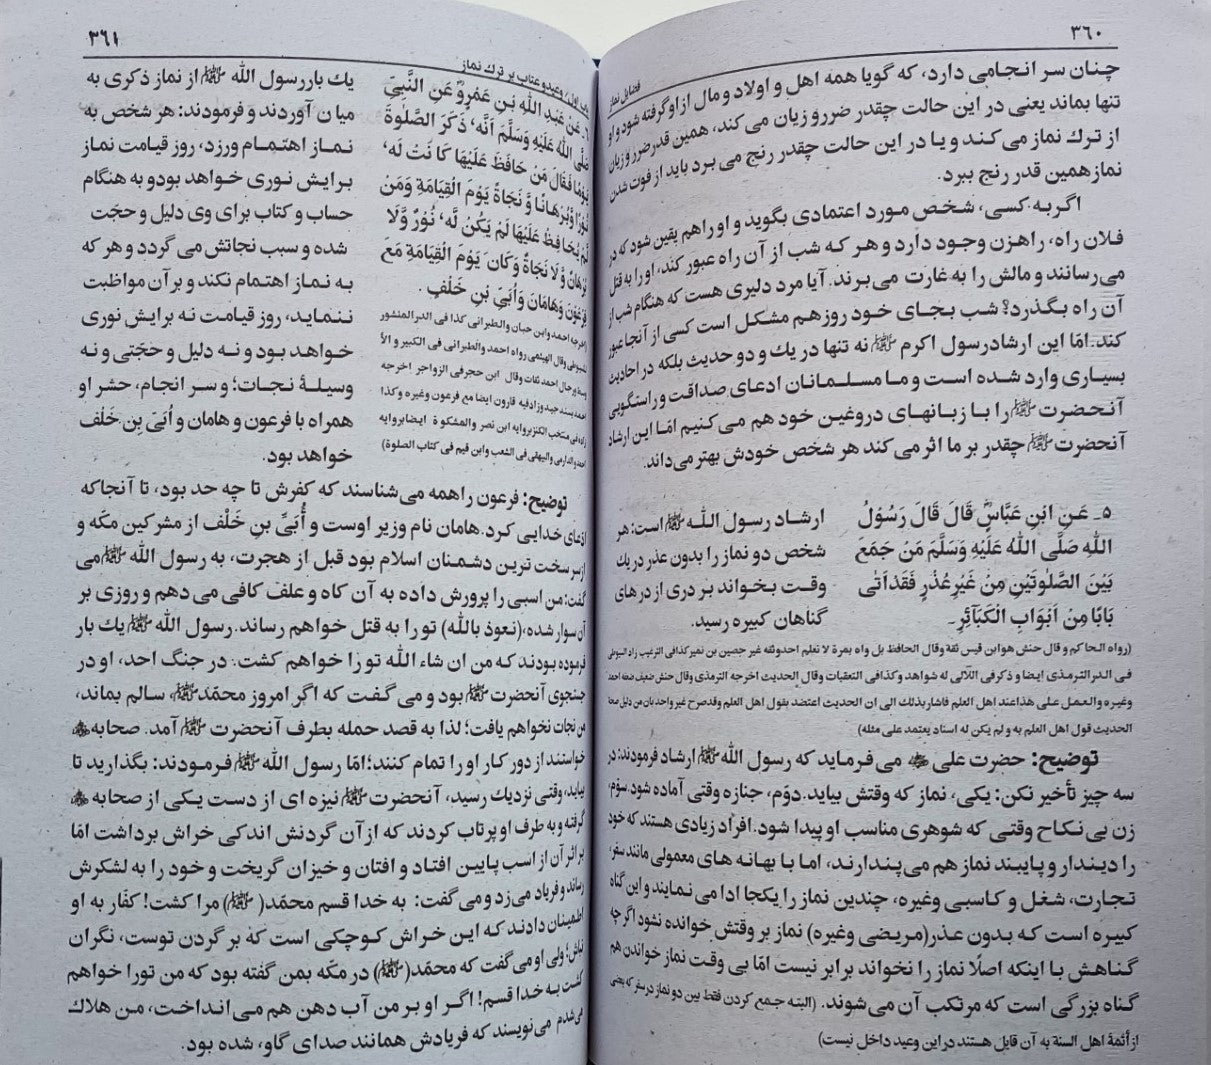 ٣٦٠
فضایل نماز
چنان سر انجامی دارد، که گویا همه اهل و اولاد و مال از او گرفته شود و او
تنها بماند یعنی در این حالت چقدر ضرر و زیان می کند، همین قدر ضرر و زیان
از ترك نماز می کند و یا در این حالت چقدر رنج می برد باید از فوت شدن
نماز همین قدر رنج ببرد.
اگر به کسی، شخص مورد اعتمادی بگوید و او را هم یقین شود که در
فلان راه، راهزن وجود دارد و هر که شب از آن راه عبور کند، او را به قتل
می رسانند و مالش را به غارت می برند. آیا مرد دلیری هست که هنگام شب از
آن راه بگذرد؟ شب بجای خود روز هم مشکل است کسی از آنجا عبور
کند. امّا این ارشاد رسول اکرم ﷺ نه تنها در یك و دو حدیث بلکه در احادیث
بسیاری وارد شده است و ما مسلمانان ادعای صداقت و راستگویی
آنحضرت ﷺ را با زبانهای دروغین خود هم می کنیم امّا این ارشاد
آنحضرت ﷺ چقدر بر ما اثر می کند هر شخص خودش بهتر می داند.
٥ـ عَـنِ ابْنِ عَبَّاسٍؓ قَالَ قَالَ رَسُوْلُ
اللهِ صَلَّى اللهُ عَلَيْهِ وَسَلَّمَ مَنْ جَمَعَ
بَيْنَ الصَّلٰوتَيْنِ مِنْ غَيْرِ عُذْرٍ فَقَدْ اَتٰى
بَابًا مِنْ اَبْوَابِ الْكَبَآئِرِ ـ
ارشاد رسول اللـه ﷺ است: هر
شخص دو نماز را بدون عذر در یك
وقـت بـخـواند بر دری از در های
گناهان کبیره رسید.
(رواه الحاکم و قال حنش هو ابن قیس ثقة وقال الحافظ بل واه بمرة لا نعلم احد وثقه غیر حصین بن نمیر کذا فی الترغیب زاد السیوطی
فـی الـدر الترمذی ایضا و ذکر فی اللآلی له شواهد و کذا فی التعقبات وقال الحدیث اخرجه الترمذی وقال حنش ضعیف ضعفه احمد
وغیره والعمل علی هذا عند اهل العلم فاشار بذلك الی ان الحدیث اعتضد بقول اهل العلم وقد صرح غیر واحد بان من دلیل صحة
الحدیث قول اهل العلم به و لم یکن له اسناد یعتمد علی مثله)
توضیح: حضرت علی ؓ می فرماید که رسول الله ﷺ ارشاد فرمودند: در
سه چیز تأخیر نکن: یکی، نماز که وقتش بیاید. دوّم، جنازه وقتی آماده شود. سوّم،
زن بی نکاح وقتی که شوهری مناسب او پیدا شود. افراد زیادی هستند که خود
را دیندار و پایبند نماز هم می پندارند، اما با بهانه های معمولی مانند سفر،
تجارت، شغل و کاسبی وغیره، چندین نماز را یکجا ادا می نمایند و این گناه
کبیره است که بدون عذر (مریضی وغیره) نماز بر وقتش خوانده نشود اگر چه
گناهش با اینکه اصلًا نماز را نخواند برابر نیست امّا بی وقت نماز خواندن هم
گناه بزرگی است که مرتکب آن می شوند. (البتـه جمع کردن فقط بین دو نماز در سفر که بعضی
از أئمۀ اهل السنة به آن قایل هستند در این وعید داخل نیست)
٣٦١
باب اول؛ وعید و عتاب بر ترك نماز
٦ـ عَنْ عَبْدِ اللهِ بْنِ عَمْرٍوؓ عَنِ النَّبِيِّ
صَلَّى اللهُ عَلَيْهِ وَسَلَّمَ اَنَّه‘ ذَكَرَ الصَّلٰوةَ
يَوْمًا فَقَالَ مَنْ حَافَظَ عَلَيْهَا كَانَتْ لَه‘
نُوْرًا وَّبُرْهَانًا وَّ نَجَاةً يَوْمَ الْقِيَامَةِ وَمَنْ
لَّمْ يُحَافِظْ عَلَيْهَا لَمْ يَكُنْ لَّه‘ نُوْرٌ وَّلَا
بُرْهَانٌ وَّ لَا نَجَاةٌ وَكَانَ يَوْمَ الْقِيَامَةِ مَعَ
فِرْعَوْنَ وَهَامَانَ وَاُبَيِّ بْنِ خَلْفٍ ـ
(اخرجه احمد وابن حبان والطبرانی کذا فی الدر المنثور
للسیوطی وقال الهیثمی رواه احمد والطبرانی فی الکبیر و الأ
وسط ورجال احمد ثقات وقال ابن حجر فی الزواجر اخرجه
احمد بسند جید وزاد فیه قارون ایضا مع فرعون وغیره و کذا
زاده فی منتخب الکنز بروایه ابن نصر والمشکوة ایضا بروایه
احمد والدارمی والبیهقی فی الشعب وابن قیم فی کتاب الصلوة)
یك بار رسول الله ﷺ از نماز ذکری به
میان آوردند و فرمودند: هر شخص به
نمـاز اهتـمـام ورزد، روز قیامت نماز
برایش نوری خواهد بود و به هنگام
حساب و کتاب برای وی دلیل و حجّت
شده و سبب نجاتش می گردد و هر که
به نـماز اهتمام نکند و بر آن مواظبت
ننماید، روز قیامت نه برایش نوری
خواهد بود و نه دلیل و حجّتی و نه
وسیلۀ نجات؛ و سر انجام، حشر او
همراه با فرعون و هامان و اُبَیّ بِن خَلْف
خواهد بود.
توضیح: فرعون را همه می شناسند که کفرش تا چه حد بود، تا آنجا که
ادعای خدایی کرد. هامان نام وزیر اوست و أُبَیِّ بنِ خَلْف از مشرکین مکّه و
از سر سخت ترین دشمنان اسلام بود قبل از هجرت، به رسول الله ﷺ می
گفت: من اسبی را پرورش داده به آن کاه و علف کافی می دهم و روزی بر
آن سوار شده، (نعوذ بالله) تو را به قتل خواهم رساند. رسول الله ﷺ یك بار
فرموده بودند که من ان شاء الله تو را خواهم کشت. در جنگ احد، او در
جستجوی آنحضرت ﷺ بود و می گفت که اگر امروز محمّد ﷺ، سالم بماند،
من نجات نخواهم یافت؛ لذا به قصد حمله بطرف آنحضرت ﷺ آمد. صحابه ؓ
خواستند از دور کار او را تمام کنند؛ امّا رسول الله ﷺ فرمودند: بگذارید تا
بیاید، وقتی نزدیك رسید، آنحضرت ﷺ نیزه ای از دست یکی از صحابه ؓ
گرفته و به طرف او پرتاب کردند که از آن گردنش اندکی خراش برداشت امّا
بر اثر آن از اسب پایین افتاد و افتان و خیزان گریخت و خود را به لشکرش
رساند و فریاد می زد و می گفت: به خدا قسم محمّد( ﷺ) مرا کشت! کفّار به او
اطمینان دادند که این خراش کوچکی است که بر گردن توست، نگران
نباش؛ ولی او می گفت که محمّد( ﷺ) در مکّه بمن گفته بود که من تو را خواهم
کشت به خدا قسم! اگر او بر من آب دهن هم می انداخت، من هلاك
می شدم می نویسند که فریادش همانند صدای گاو، شده بود.